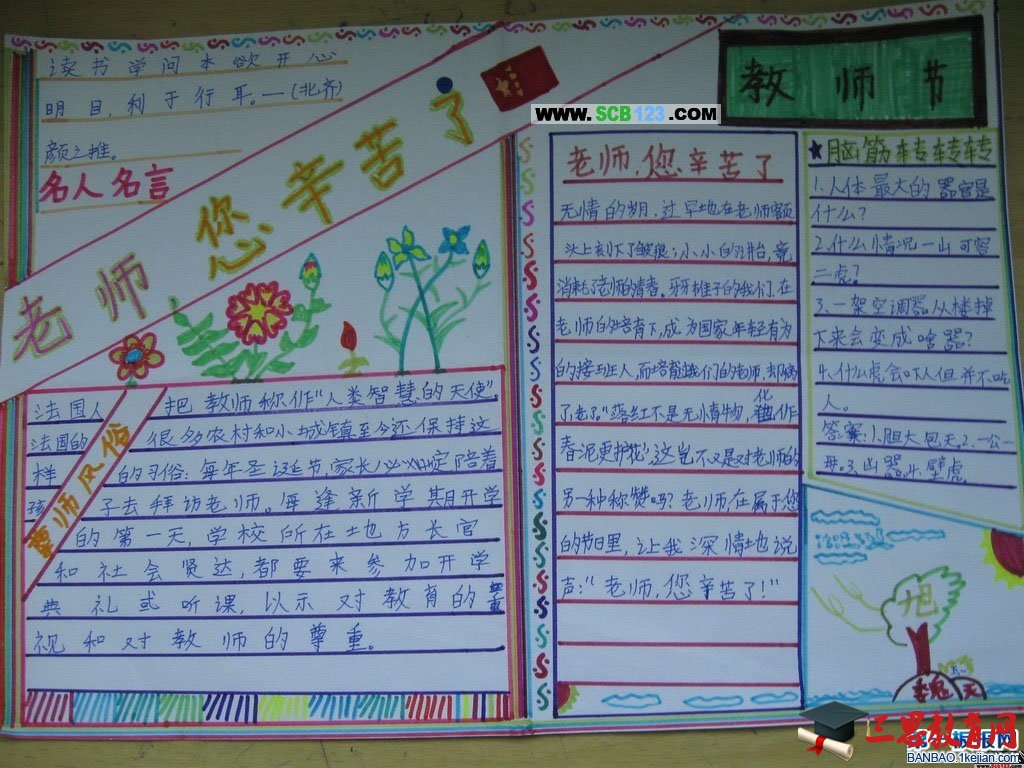 读书学问本欲开心
明目,利于行耳。—(北齐)
颜之推。
名人名言
老师您辛苦了
教师节
www.SCB123.com
法国人把教师称作“人类智慧的天使”。
法国的很多农村和小城镇至今还保持这
样的习俗:每年圣诞节,家长必定陪着
孩子去拜访老师。每逢新学期开学
的第一天,学校所在地方长官
和社会贤达,都要来参加开学
典礼或听课,以示对教育的重
视和对教师的尊重。
尊师风俗
老师,您辛苦了
无情的岁月,过早地在老师额
头上刻下了皱痕;小小的讲台,竟
消耗了老师的青春。牙牙椎子的我们,在
老师的培育下,成为国家年轻有为
的接班人,而培育我们的老师,去
了老了。“落红不是无情物,化作
春泥更护花”,这岂不又是对老师的
另一种称赞吗?老师,在属于您
的节日里,让我深情地说
声:“老师,您辛苦了!”
★脑筋转转转
1.人体最大的器官是
什么?
2.什么情况一山可容
二虎?
3.一架空调器从楼掉
下来会变成啥器?
4.什么虎会吓人但并不吃
人。
答案:1.胆大包天2.一公一
母.3.凶器.4.壁虎
旭
魏天
三思教育网
板报网
BANBAO.1kejian.com